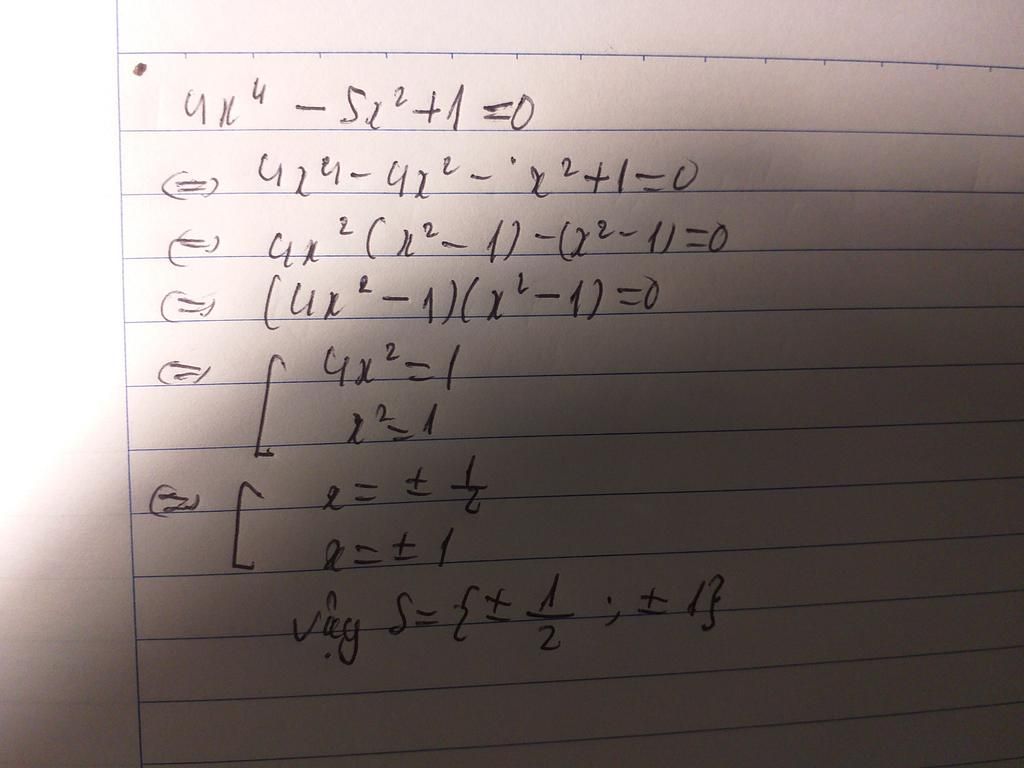 4x⁴ - 5x² + 1 = 0
⇔ 4x⁴ - 4x² - x² + 1 = 0
⇔ 4x² (x² - 1) - (x² - 1) = 0
⇔ (4x² - 1)(x² - 1) = 0
⇔ [ 4x² = 1
x² = 1
⇔ [ x = ± 1/2
x = ± 1
Vậy S = {± 1/2 ; ± 1}